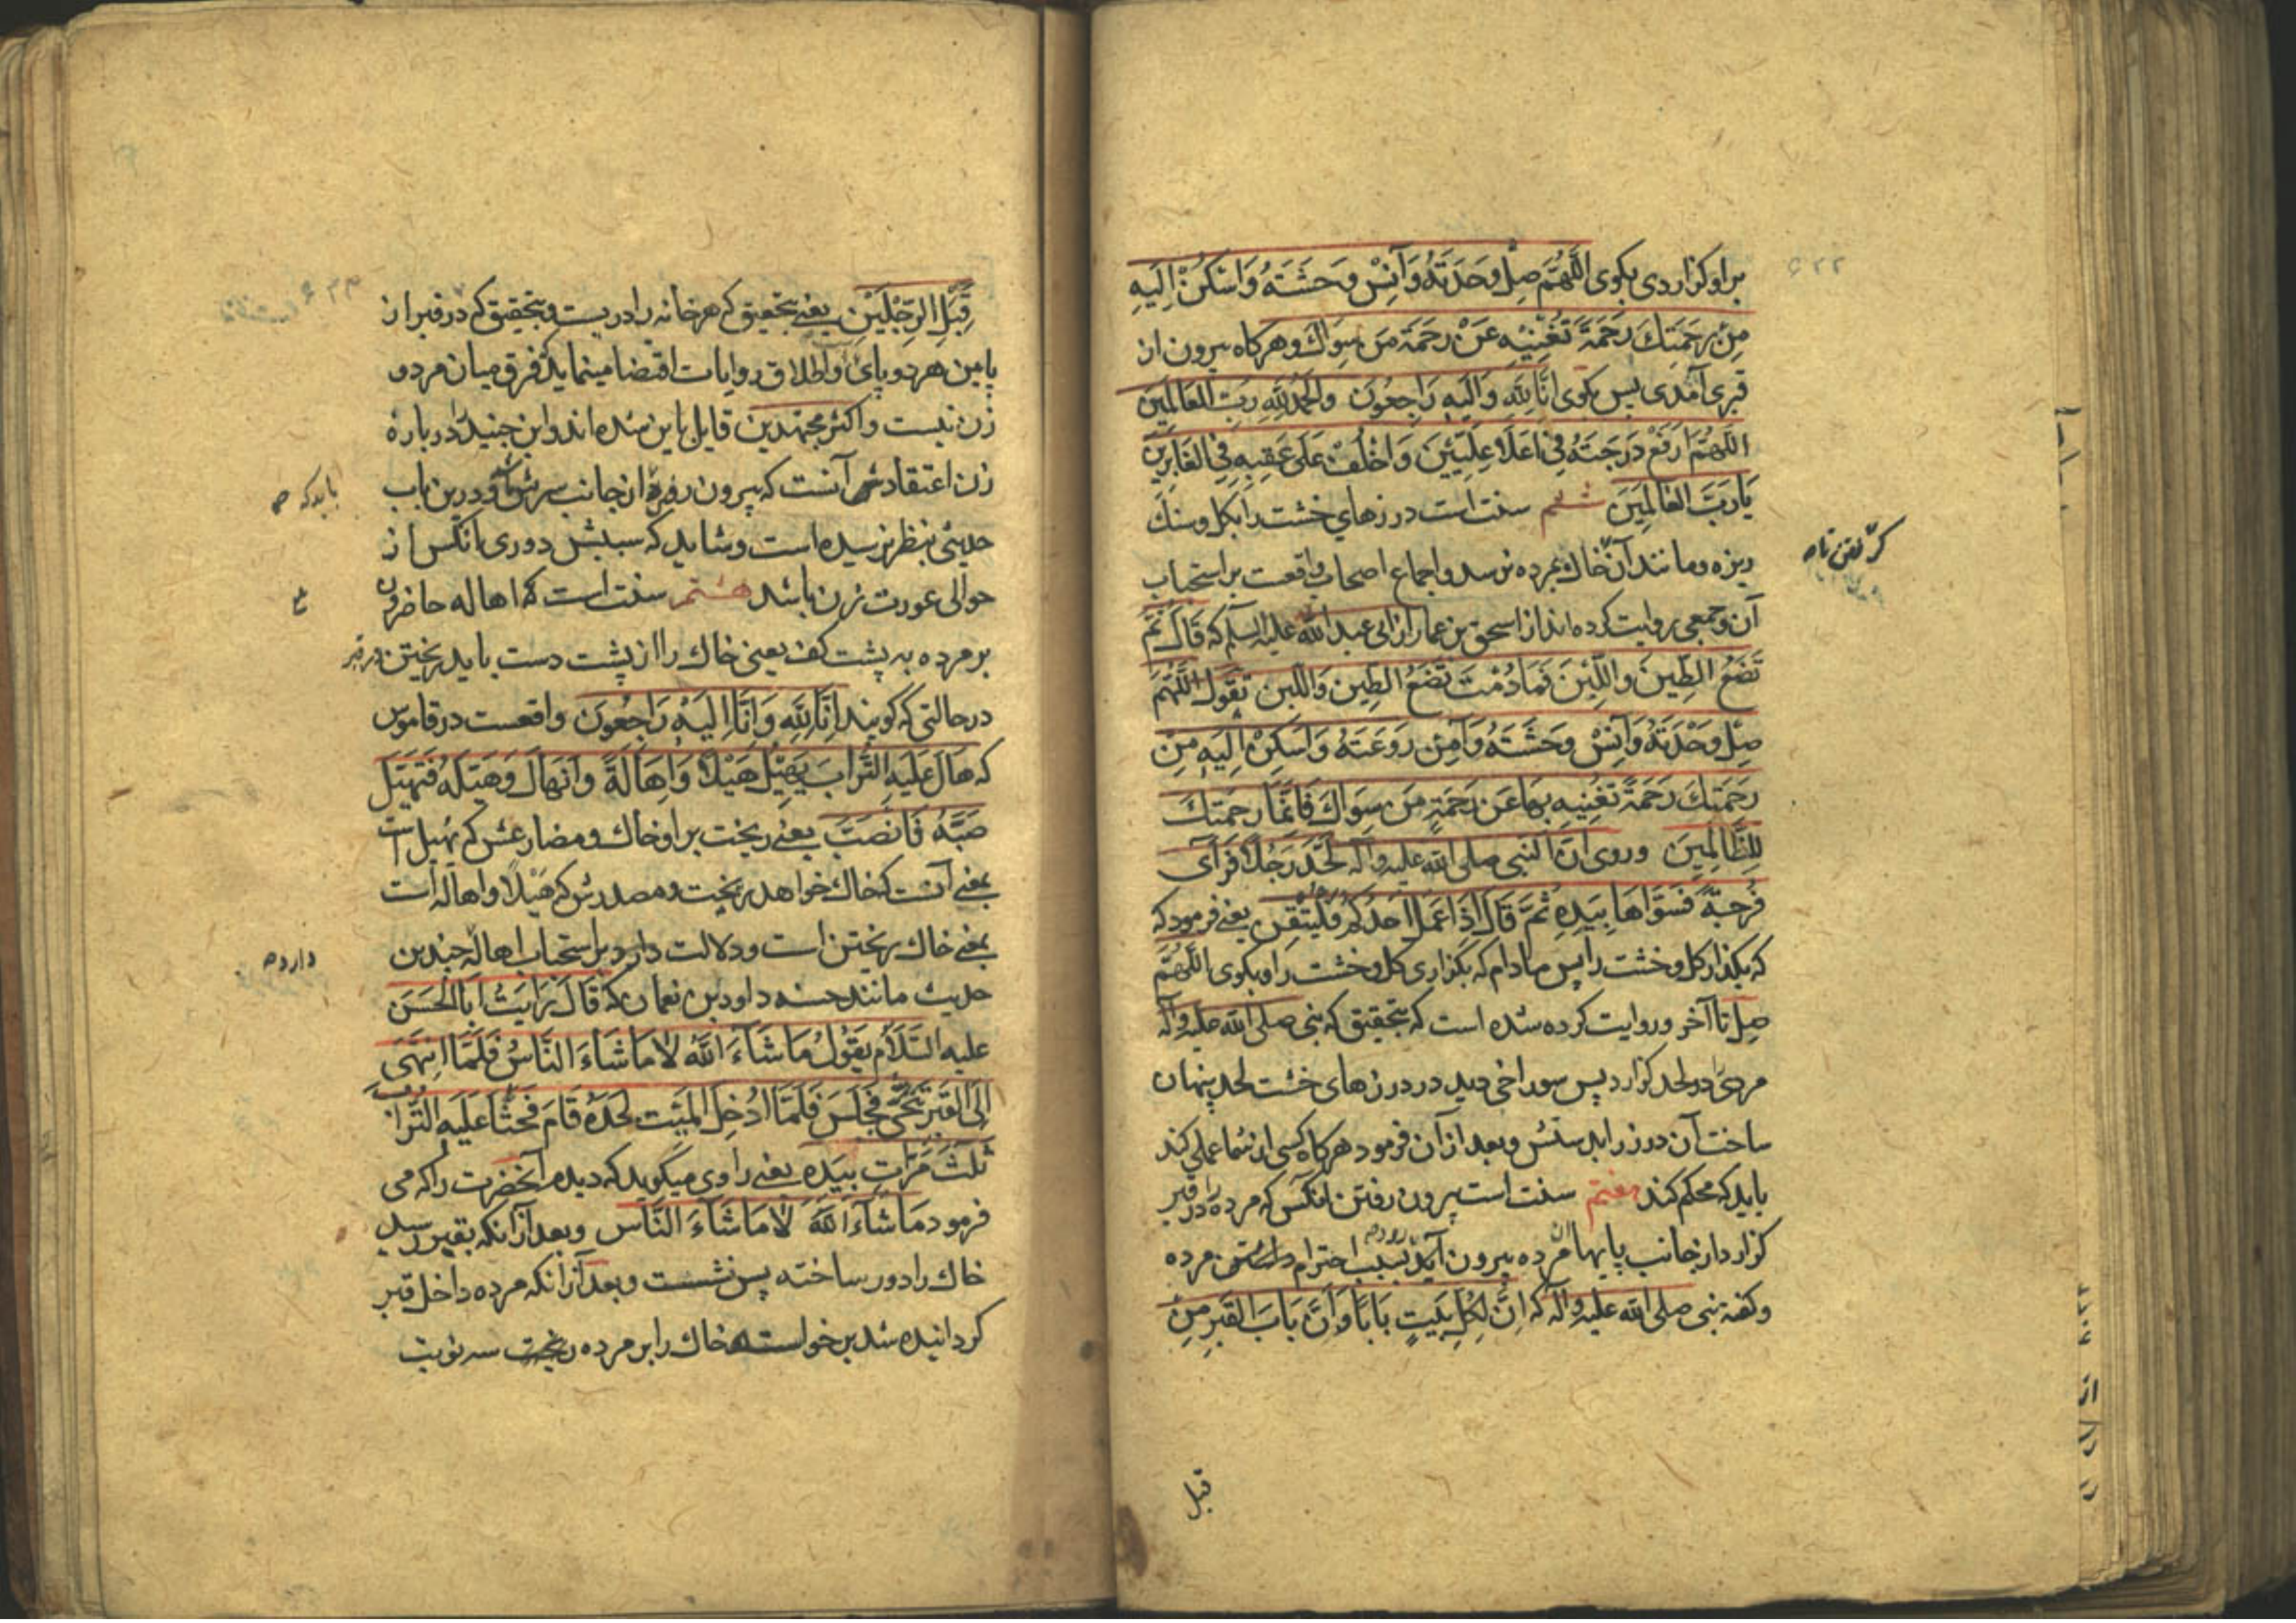 براو کزاردی بکوی اَللّٰهُمَّ صِلْ وَحْدَتَهُ وَآنِسْ وَحْشَتَهُ وَاَسْکِنْ اِلَیْهِ
مِنْ رَحْمَتِكَ رَحْمَةً تُغْنِیْهِ عَنْ رَحْمَةِ مَنْ سِوَاكَ وهرکاه بیرون از
قبری آمدی پس بکوی اِنَّا لِلّٰهِ وَاِلَیْهِ رَاجِعُونَ وَالْحَمْدُ لِلّٰهِ رَبِّ الْعَالَمِینَ
اَللّٰهُمَّ ارْفَعْ دَرَجَتَهُ فِی اَعْلَا عِلِّیِّینَ وَاخْلُفْ عَلٰی عَقِبِهِ فِی الْغَابِرِینَ
یَا رَبَّ الْعَالَمِینَ ششم سنت است درزهای خشت را بکل وسنك
ریزه ومانند آن خاك بمرده نرسد واجماع اصحاب واقعت بر استحباب
کرفتن تا صح
آن وجمعی روایت کرده اند از اسحق بن عمار از ابی عبد الله علیه السلم که قَالَ ثُمَّ
تَضَعُ الطِّینَ وَاللَّبِنَ فَمَا دُمْتَ تَضَعُ الطِّینَ وَاللَّبِنَ تَقُولُ اَللّٰهُمَّ
صِلْ وَحْدَتَهُ وَآنِسْ وَحْشَتَهُ وَآمِنْ رَوْعَتَهُ وَاَسْکِنْ اِلَیْهِ مِنْ
رَحْمَتِكَ رَحْمَةً تُغْنِیهِ بِهَا عَنْ رَحْمَةِ مَنْ سِوَاكَ فَاِنَّمَا رَحْمَتُكَ
لِلظَّالِمِینَ وروی انّ النبی صلی الله علیه واله لَحَّدَ رَجُلًا فَرَآی
فُرْجَةً فَسَوَّاهَا بِیَدِهِ ثُمَّ قَالَ اِذَا عَمِلَ اَحَدُکُمْ فَلْیُتْقِنْ یعنی فرمود که
که بکذار کل وخشت را پس مادام که بکزاری کل وخشت را وبکوی اَللّٰهُمَّ
صِلْ تا آخر وروایت کرده شده است که بتحقیق که نبی صلی الله علیه واله
مردی در لحد کزارد پس سوراخی دید در درزهای خشت لحد پنهان
ساخت آن درز را بدستش وبعد از آن فرمود هرکاه کسی از شما عملی کند
باید که محکم کند هفتم سنت است بیرون رفتن انکس که مرده را در قبر
کزارد از جانب پایهای مرده بیرون آید بسبب احترام داشتن مرده
وکفته نبی صلی الله علیه واله که اِنَّ لِکُلِّ بَیْتٍ بَابًا وَاِنَّ بَابَ الْقَبْرِ مِنْ
قبل
قِبَلِ الرِّجْلَیْنِ یعنی بتحقیق که هر خانه را دریست وبتحقیق که در قبر از
پایین هر دو پای واطلاق روایات اقتضا مینماید که فرق میان مرد و
زن نیست واکثر مجتهدین قایل باین شده اند وابن جنید را در بارهٔ
زن اعتقادش آنست که بیرون رود از جانب سرش ودرین باب
باید که صح
حدیثی بنظر نرسیده است وشاید که سببش دوری انکس از
حوالی عورت زن باشد هشتم سنت است که اهاله حاضران
بر مرده به پشت کف یعنی خاك را از پشت دست باید ریختن در قبر
در حالتی که کویند اِنَّا لِلّٰهِ وَاِنَّا اِلَیْهِ رَاجِعُونَ واقعست در قاموس
که هَالَ عَلَیْهِ التُّرَابَ یَهِیْلُ هَیْلًا وَاِهَالَةً وَانْهَالَ وَهَیَّلَهُ فَتَهَیَّلَ
صَبَّهُ فَانْصَبَّ یعنی ریخت براو خاك ومضارعش که یهیل است
بمعنی آنست که خاك خواهد ریخت ومصدرش که هَیْلًا واهاله است
بمعنی خاك ریختن است ودلالت دارد بر استحباب اهاله چندین
دارد صح
حدیث مانند حسنه داود بن نعمان که قَالَ رَاَیْتُ اَبَا الْحَسَنِ
علیه السَّلَامُ یَقُولُ مَا شَاءَ اللّٰهُ لَا مَا شَاءَ النَّاسُ فَلَمَّا انْتَهٰی
اِلَی الْقَبْرِ تَنَحّٰی فَجَلَسَ فَلَمَّا اُدْخِلَ الْمَیِّتُ لَحْدَهُ قَامَ فَحَثَا عَلَیْهِ التُّرَابَ
ثَلٰثَ مَرَّاتٍ بِیَدِهِ یعنی راوی میکوید که دیدم آنحضرت را که می
فرمود مَا شَآءَ اللّٰهُ لَا مَا شَآءَ النَّاسُ وبعد از انکه بقبر رسید
خاك را دور ساخته پس نشست وبعد از انکه مرده داخل قبر
کردانیده شد برخواسته خاك را بر مرده ریخت سه نوبت